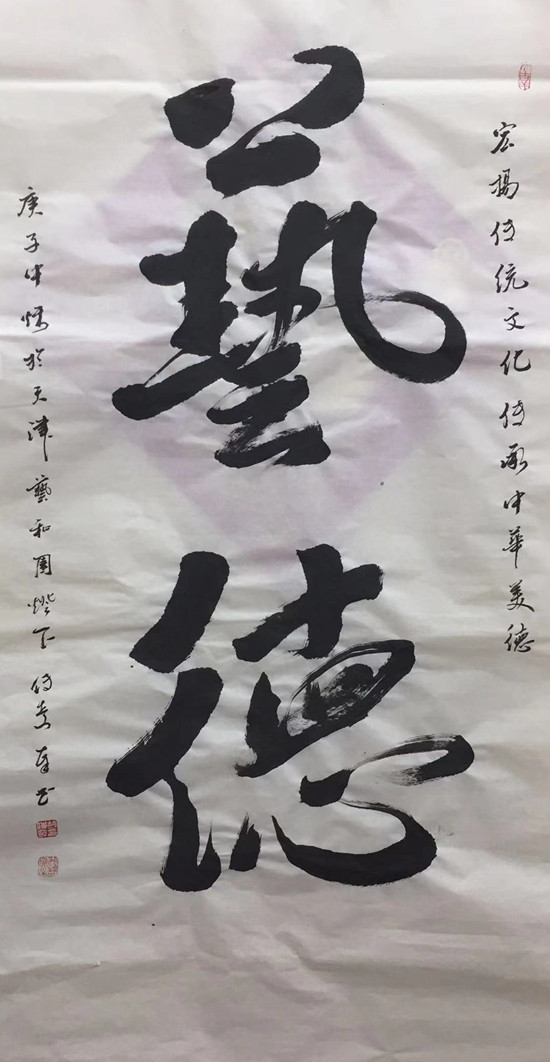 宏揚传统文化传承中華美德
藝德
庚子中秋於天津藝和園燈下